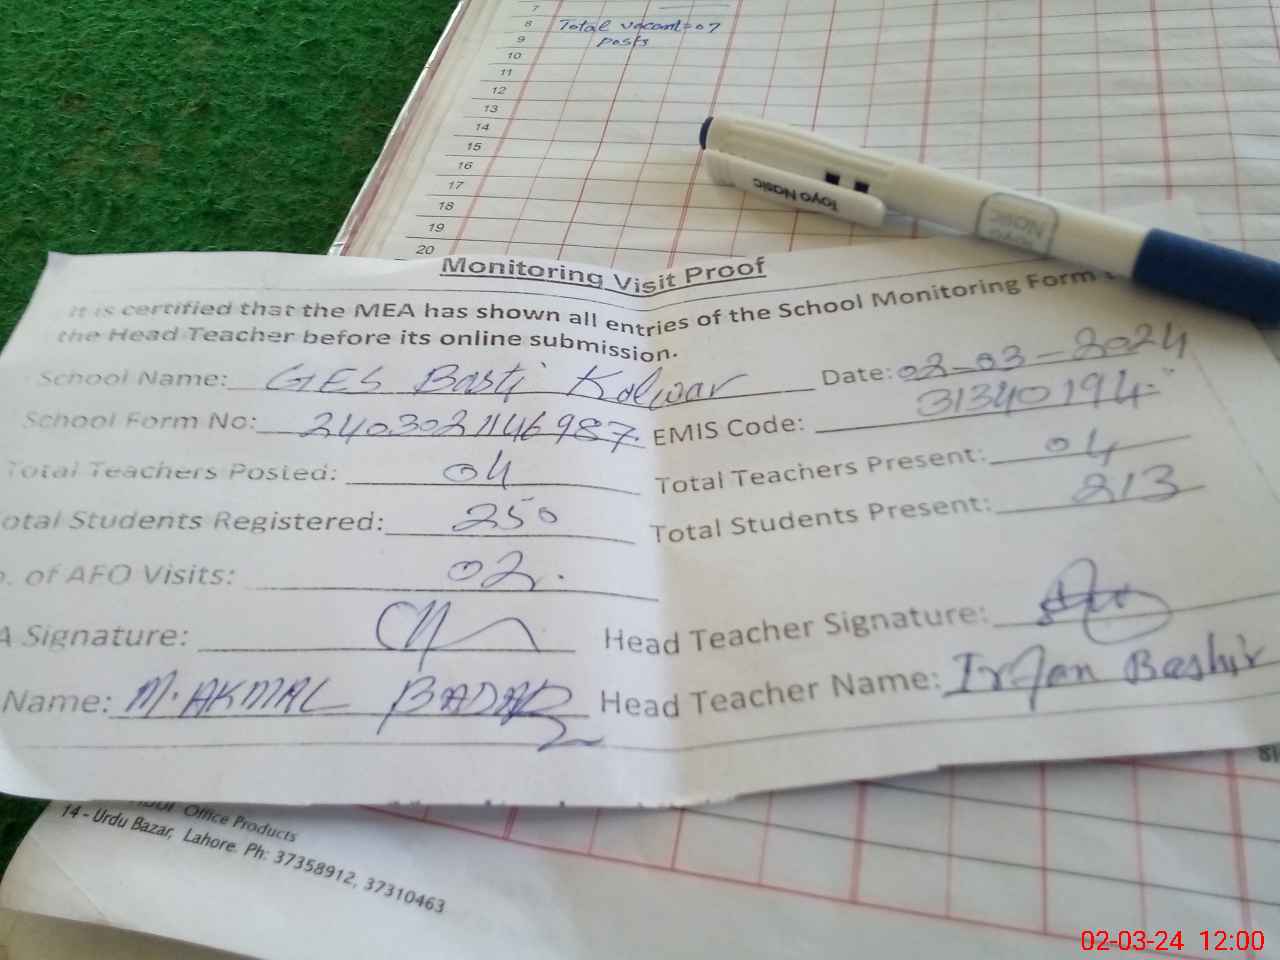 7
8 Total vacant=07
9 posts
10
11
12
13
14
15
16
17
18
19
20
Toyo Nasic
Monitoring Visit Proof
It is certified that the MEA has shown all entries of the School Monitoring Form
the Head Teacher before its online submission.
School Name: GES Basti Kolwar Date: 02-03-2024
School Form No: 2403021146987. EMIS Code: 31340194
Total Teachers Posted: 04 Total Teachers Present: 04
otal Students Registered: 250 Total Students Present: 213
. of AFO Visits: 02.
A Signature: Head Teacher Signature:
Name: M. AKMAL BADAR Head Teacher Name: Irfan Bashir
18
Office Products
14 - Urdu Bazar, Lahore. Ph: 37358912, 37310463
02-03-24 12:00